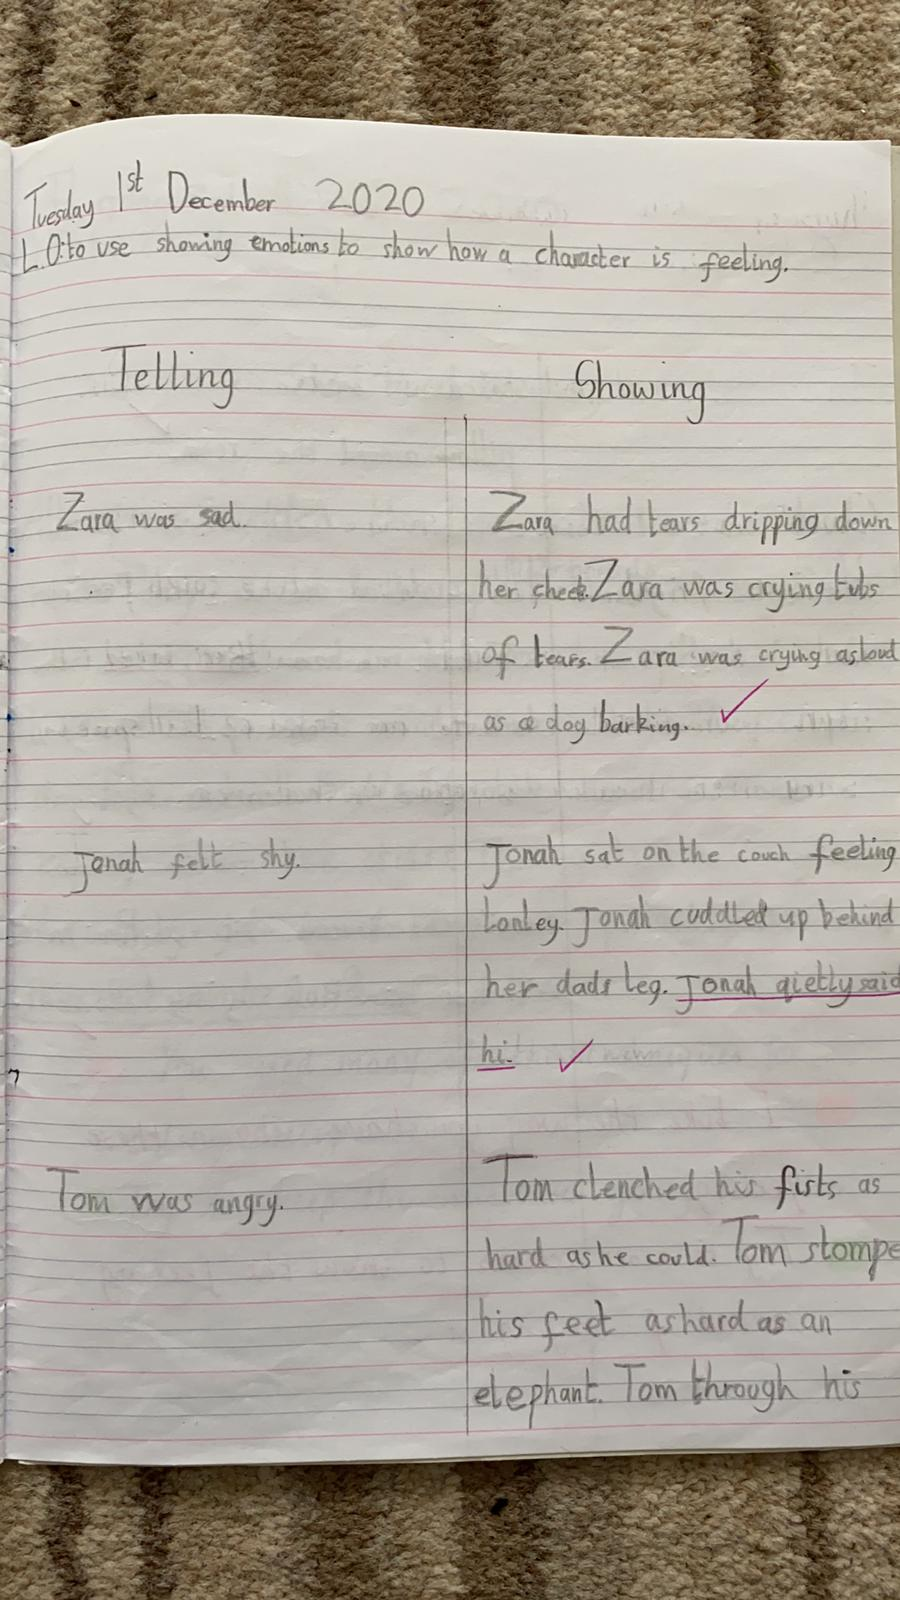 Tuesday 1st December 2020
L.O: to use showing emotions to show how a character is feeling.
Telling
Showing
Zara was sad.
Zara had tears dripping down
her cheek. Zara was crying tubs
of tears. Zara was crying as loud
as a dog barking.
Jonah felt shy.
Jonah sat on the couch feeling
lonley. Jonah cuddled up behind
her dads leg. Jonah qietly said
hi.
Tom was angry.
Tom clenched his fists as
hard as he could. Tom stompe
his feet as hard as an
elephant. Tom through his